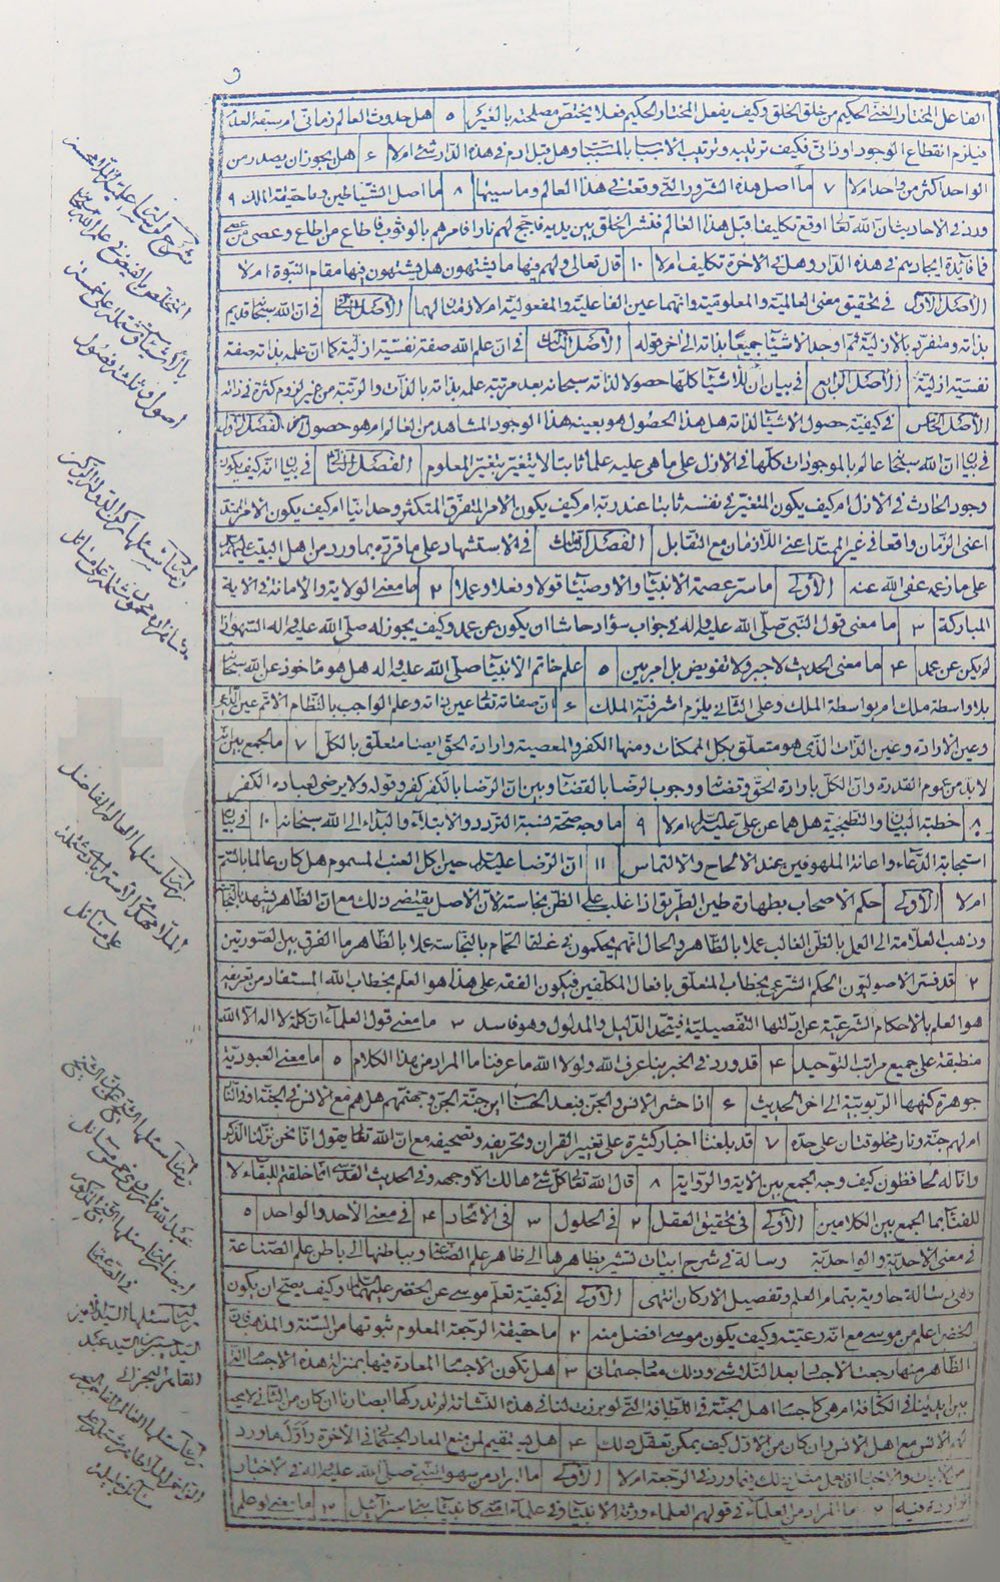 الفاعل المختار الغنى الحكيم من خلق الخلق وكيف يفعل المختار الحكيم فعلا يختص مصلحته بالغير ٥ هل حدوث العالم زمانى ام سبقه العدم
فيلزم انقطاع الوجود او ذاتى فكيف ترتيبه وترتيب الاسباب بالمسببات وهل قبل ادم فى هذه الدار شئ ام لا ٦ هل يجوز ان يصدر من
الواحد اكثر من واحد ام لا ٧ ما اصل هذه الشرور التى وقعت فى هذا العالم وما سببها ٨ ما اصل الشياطين وما حقيقة الملك ٩
ورد فى الاحاديث ان الله تعالى اوقع تكليفا قبل هذا العالم فنشر الخلق بين يديه فاجج لهم نارا فامرهم بالوثوب فاطاع من اطاع وعصى من عصى
فما فائدة ايجادهم فى هذه الدار وهل فى الاخرة تكليف ام لا ١٠ قال تعالى ولهم فيها ما يشتهون هل يشتهون فيها مقام النبوة ام لا
الاصل الاول فى تحقيق معنى العالمية والمعلومية وانهما عين الفاعلية والمفعولية ام لازمتان لهما الاصل الثانى فى ان الله سبحانه قديم
بذاته ومنفرد بالازلية ثم اوجد الاشياء جميعا بذاته الى اخر قوله الاصل الثالث فى ان علم الله صفة نفسية ازلية كما ان علمه بذاته صفة
نفسية ازلية الاصل الرابع فى بيان ان للاشياء كلها حصولا لذاته سبحانه بعد مرتبة علمه بذاته بالذات والرتبة من غير لزوم كثرة فى ذاته
الاصل الخامس فى كيفية حصول الاشياء لذاته هل هذا الحصول هو بعينه هذا الوجود المشاهد من العالم ام هو حصول اخر الفصل الاول
فى بيان ان الله سبحانه عالم بالموجودات كلها فى الازل على ما هى عليه علما ثابتا لا يتغير بتغير المعلوم الفصل الثانى فى بيان انه كيف يكون
وجود الحادث فى الازل ام كيف يكون المتغير فى نفسه ثابتا عند ربه ام كيف يكون الامر المتفرق المتكثر وحدانيا ام كيف يكون الامر الممتد
اعنى الزمان واقعا فى غير الممتد اعنى اللازمان مع التقابل الفصل الثالث فى الاستشهاد على ما قرره بما ورد من اهل البيت عليهم السلام
على ما زعمه عفى الله عنه الاولى ما سر عصمة الانبياء والاوصياء قولا وفعلا وعملا ٢ ما معنى الولاية والامانة فى الاية
المباركة ٣ ما معنى قول النبى صلى الله عليه واله فى جواب سؤال حاشا ان يكون عن عمد وكيف يجوز له صلى الله عليه واله السهو ان
لم يكن عن عمد ٤ ما معنى الحديث لا جبر ولا تفويض بل امر بين ٥ علم خاتم الانبياء صلى الله عليه واله هل هو مأخوذ عن الله سبحانه
بلا واسطة ملك ام بواسطة الملك وعلى الثانى يلزم اشرفية الملك ٦ ان صفاته تعالى عين ذاته وعلم الواجب بالنظام الاتم عين الداعى
وعين الارادة وعين الذات الذى هو متعلق بكل الممكنات ومنها الكفر والمعصية وارادة الحق ايضا متعلق بالكل ٧ ما الجمع بين انه
لابد من عموم القدرة وان الكل بارادة الحق وقضائه ووجوب الرضا بالقضاء وبين ان الرضا بالكفر كفر وقوله ولا يرضى لعباده الكفر
٨ خطبة البيان والتطنجية هل هما عن على عليه السلام ام لا ٩ ما وجه صحة نسبة التردد والابتلاء والبداء الى الله سبحانه ١٠ فى بيان
استجابة الدعاء واعانة الملهوفين عند الالحاح والالتماس ١١ ان الرضا عليه السلام حين اكل العنب المسموم هل كان عالما بالسم
ام لا الاولى حكم الاصحاب بطهارة طين الطريق اذا غلب على الظن نجاسته لان الاصل يقتضى ذلك مع ان الظاهر يشهد بالنجاسة
وذهب العلامة الى العمل بالظن الغالب عملا بالظاهر والحال انهم يحكمون فى غسالة الحمام بالنجاسة عملا بالظاهر ما الفرق بين الصورتين
٢ قد فسر الاصوليون الحكم الشرعى بخطاب المتعلق بافعال المكلفين فيكون الفقه على هذا هو العلم بخطاب الله المستفاد من تعريفه
هو العلم بالاحكام الشرعية عن ادلتها التفصيلية فيتحد الدليل والمدلول وهو فاسد ٣ ما معنى قول العلماء ان كلمة لا اله الا الله
منطبقة على جميع مراتب التوحيد ٤ قد ورد فى الخبر بنا عرف الله ولولا الله ما عرفنا ما المراد من هذا الكلام ٥ ما معنى العبودية
جوهرة كنهها الربوبية الى اخر الحديث ٦ اذا حشر الانس والجن فبعد الحساب اين جنة الجن وجهنمهم هل هم مع الانس فى الجنة او النار
ام لهم جنة ونار مخلوقتان على حده ٧ قد بلغنا اخبار كثيرة على تغيير القران وتحريفه وتصحيفه مع ان الله تعالى يقول انا نحن نزلنا الذكر
وانا له لحافظون كيف وجه الجمع بين الاية والرواية ٨ قال الله تعالى كل شئ هالك الا وجهه وفى الحديث القدسى انما خلقتم للبقاء لا
للفناء بما الجمع بين الكلامين الاولى فى تحقيق العقل ٢ فى الحلول ٣ فى الاتحاد ٤ فى معنى الاحد والواحد ٥
فى معنى الاحدية والواحدية رسالة فى شرح ابيات تشير بظاهرها الى ظاهر علم الصناعة وبباطنها الى باطن علم الصناعة
وهى رسالة حاوية بتمام العلم وتفصيل الاركان انتهى الاولى فى كيفية تعلم موسى عن الخضر عليهما السلام وكيف يصح ان يكون
الخضر اعلم من موسى مع انه رعيته وكيف يكون موسى افضل منه ٢ ما حقيقة الرجعة المعلوم ثبوتها من السنة والمذهب فان
الظاهر منها رجعة الاجساد بعد التلاشى وذلك معاد جسمانى ٣ هل تكون الاجساد المعادة فيها بمنزلة هذه الاجساد التى
بين ايدينا فى الكثافة ام هى كاجساد اهل الجنة فى اللطافة التى لو برزن لنا فى هذه النشأة لم تدركها ابصارنا ان كان من الثانى لا يجتمع
اهل الانس مع اهل الانس وان كان من الاول كيف يمكن تعقل ذلك ٤ هل فيه تقيم لمن منع المعاد الجسمانى فى الاخرة واول ما ورد
ذلك فيما ورد فى الرجعة ام لا الاولى ما المراد من سهو النبى صلى الله عليه واله فى الاخبار
الواردة فيه ٢ ما المراد من العلماء فى قولهم العلماء ورثة الانبياء وفى علماء امتى كانبياء بنى اسرائيل ٣ ما معنى
اصول وثلثة فصول
على مسائل